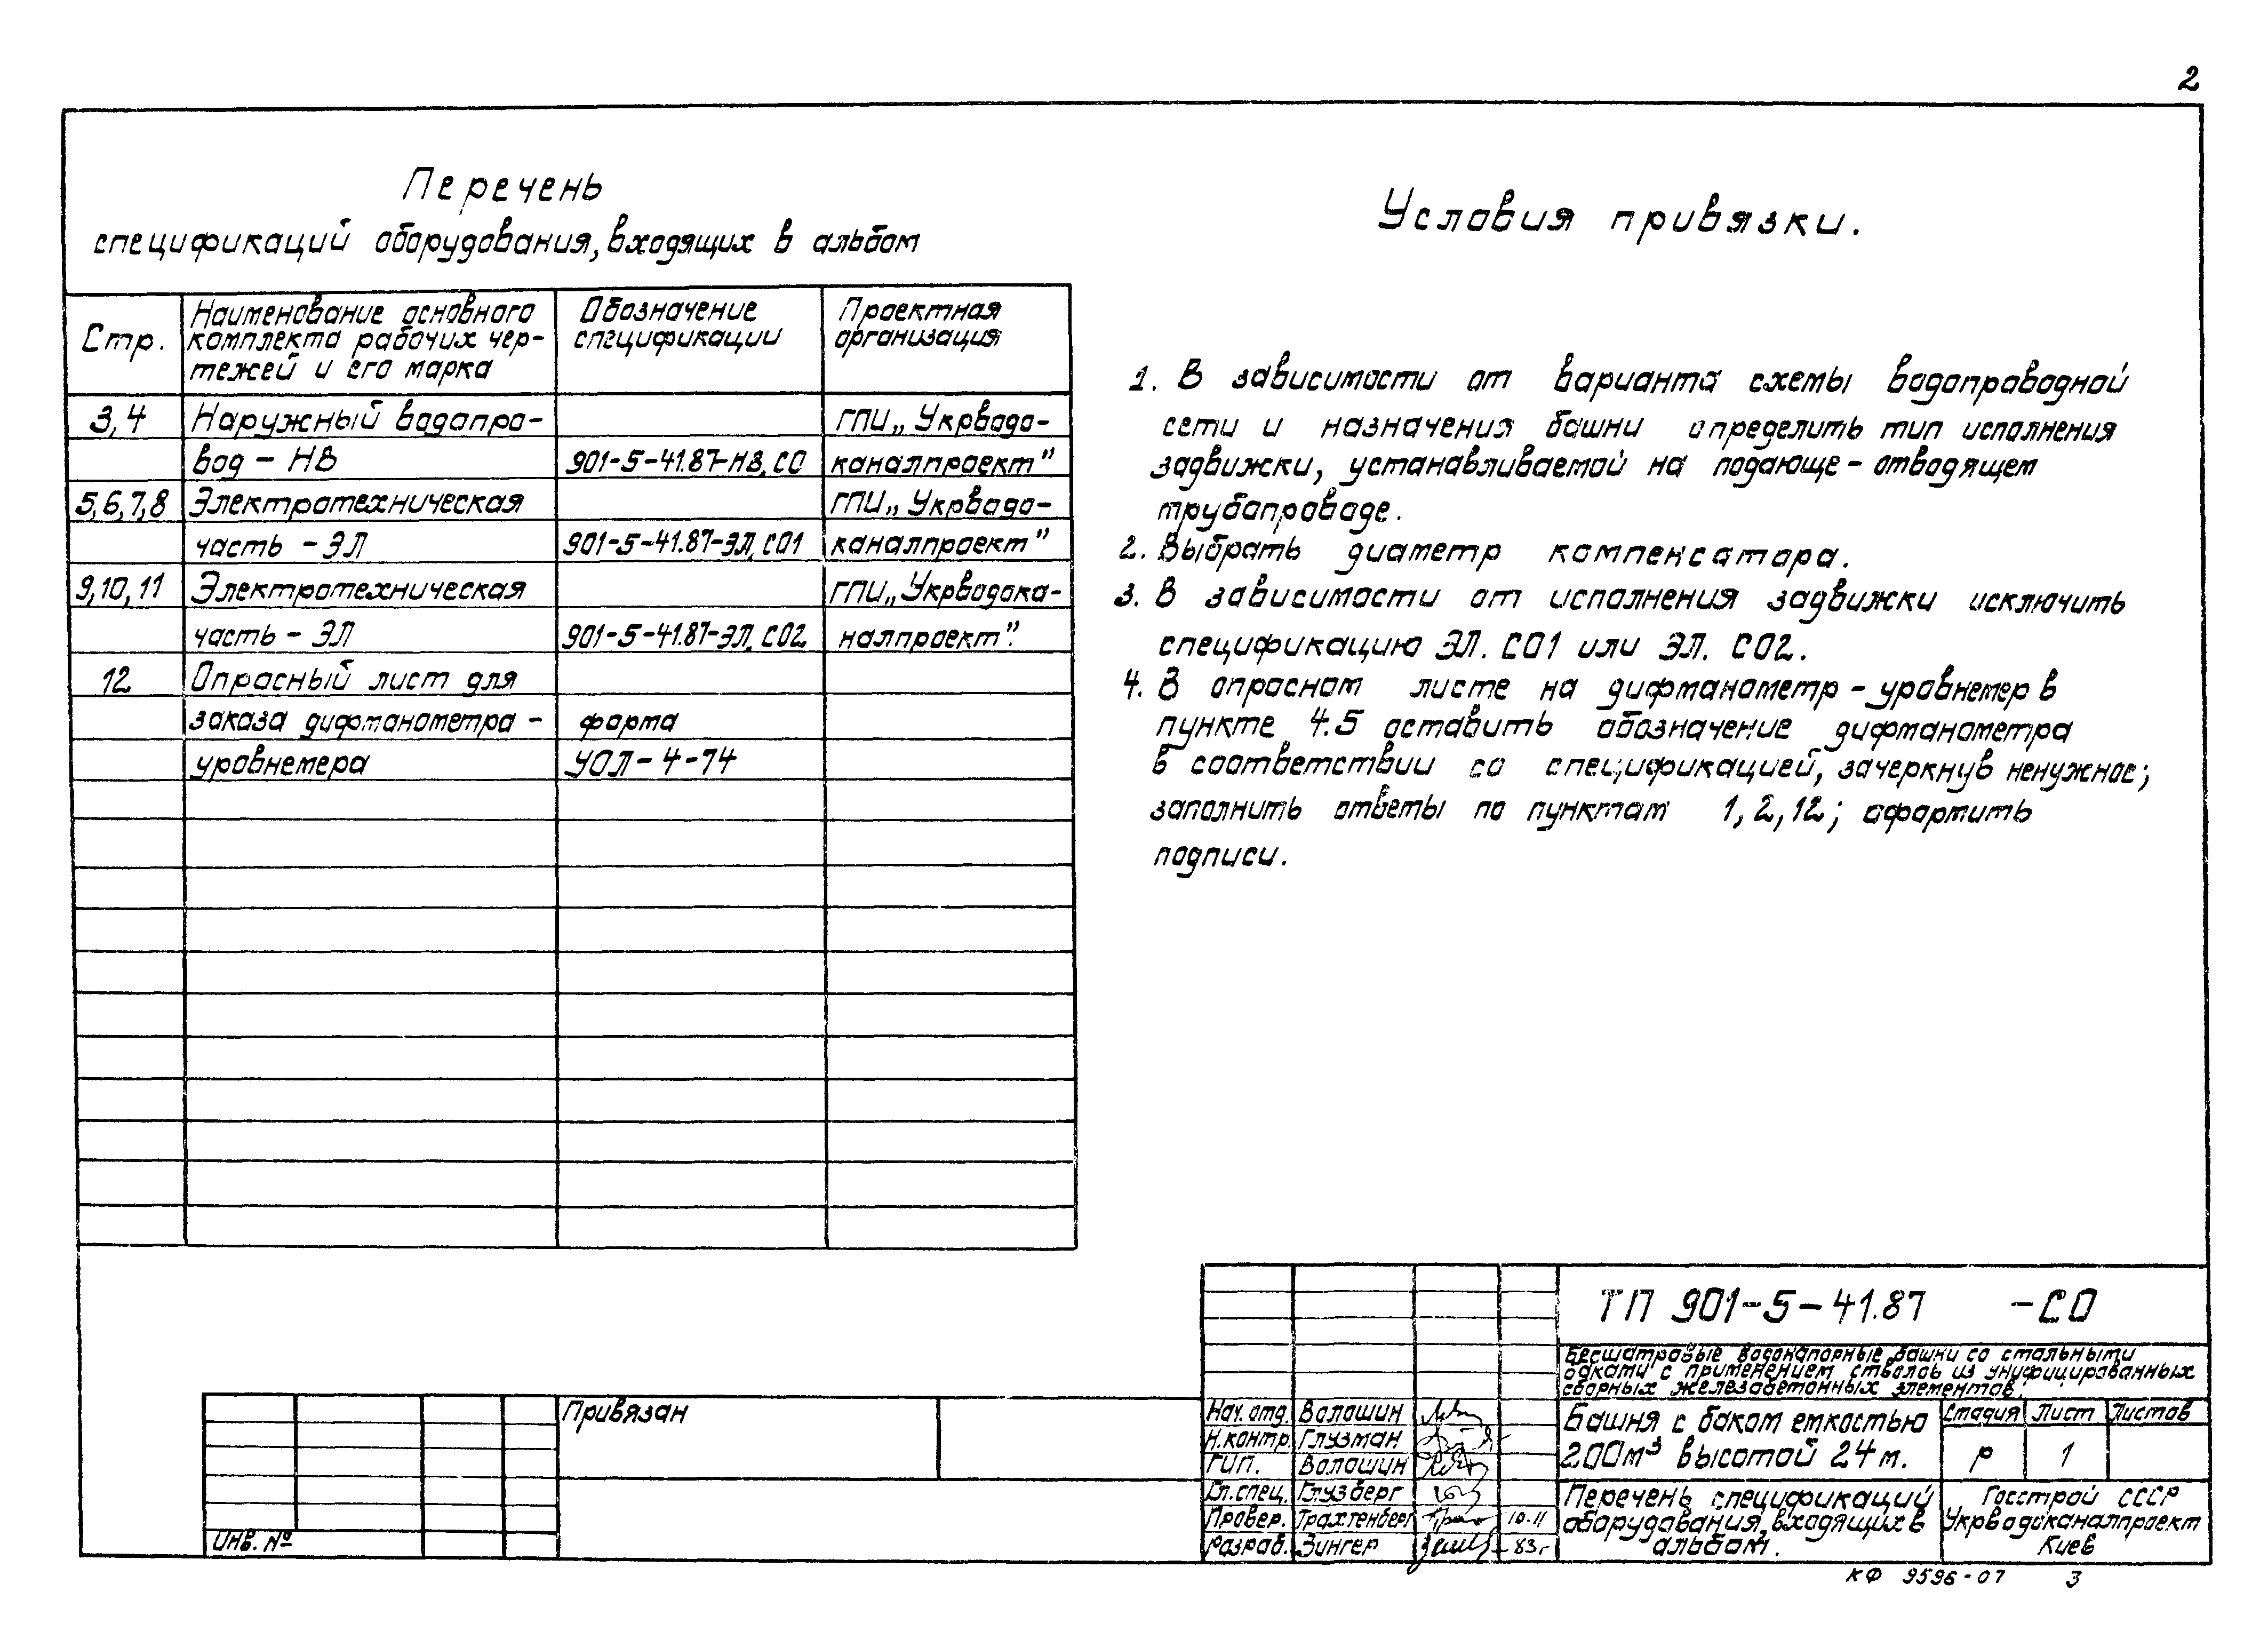 2
Перечень
спецификаций оборудования, входящих в альбом
Стр.
Наименование основного
комплекта рабочих чер-
тежей и его марка
Обозначение
спецификации
Проектная
организация
3,4 Наружный водопро- ГПИ „Укрводо-
вод – НВ 901-5-41.87-НВ.СО каналпроект"
5,6,7,8 Электротехническая ГПИ „Укрводо-
часть – ЭЛ 901-5-41.87-ЭЛ.СО1 каналпроект"
9,10,11 Электротехническая ГПИ „Укрводока-
часть – ЭЛ 901-5-41.87-ЭЛ.СО2 налпроект".
12 Опросный лист для
заказа дифманометра – форма
уровнемера УОЛ-4-74
Условия привязки.
1. В зависимости от варианта схемы водопроводной
сети и назначения башни определить тип исполнения
задвижки, устанавливаемой на подающе-отводящем
трубопроводе.
2. Выбрать диаметр компенсатора.
3. В зависимости от исполнения задвижки исключить
спецификацию ЭЛ. СО1 или ЭЛ. СО2.
4. В опросном листе на дифманометр-уровнемер в
пункте 4.5 оставить обозначение дифманометра
в соответствии со спецификацией, зачеркнув ненужное;
заполнить ответы по пунктам 1, 2, 12; оформить
подписи.
ТП 901-5-41.87 -СО
Бесшатровые водонапорные башни со стальными
баками с применением стволов из унифицированных
сборных железобетонных элементов.
Привязан
Инв. №
Нач. отд. Волошин
Н.контр. Глузман
ГИП. Волошин
Гл.спец. Глузберг
Провер. Трахтенберг 10.11
Разраб. Зингер 83г
Башня с баком емкостью
200м³ высотой 24м.
Стадия Лист Листов
Р 1
Перечень спецификаций
оборудования, входящих в
альбом.
Госстрой СССР
Укрводоканалпроект
Киев
КФ 9596-07 3